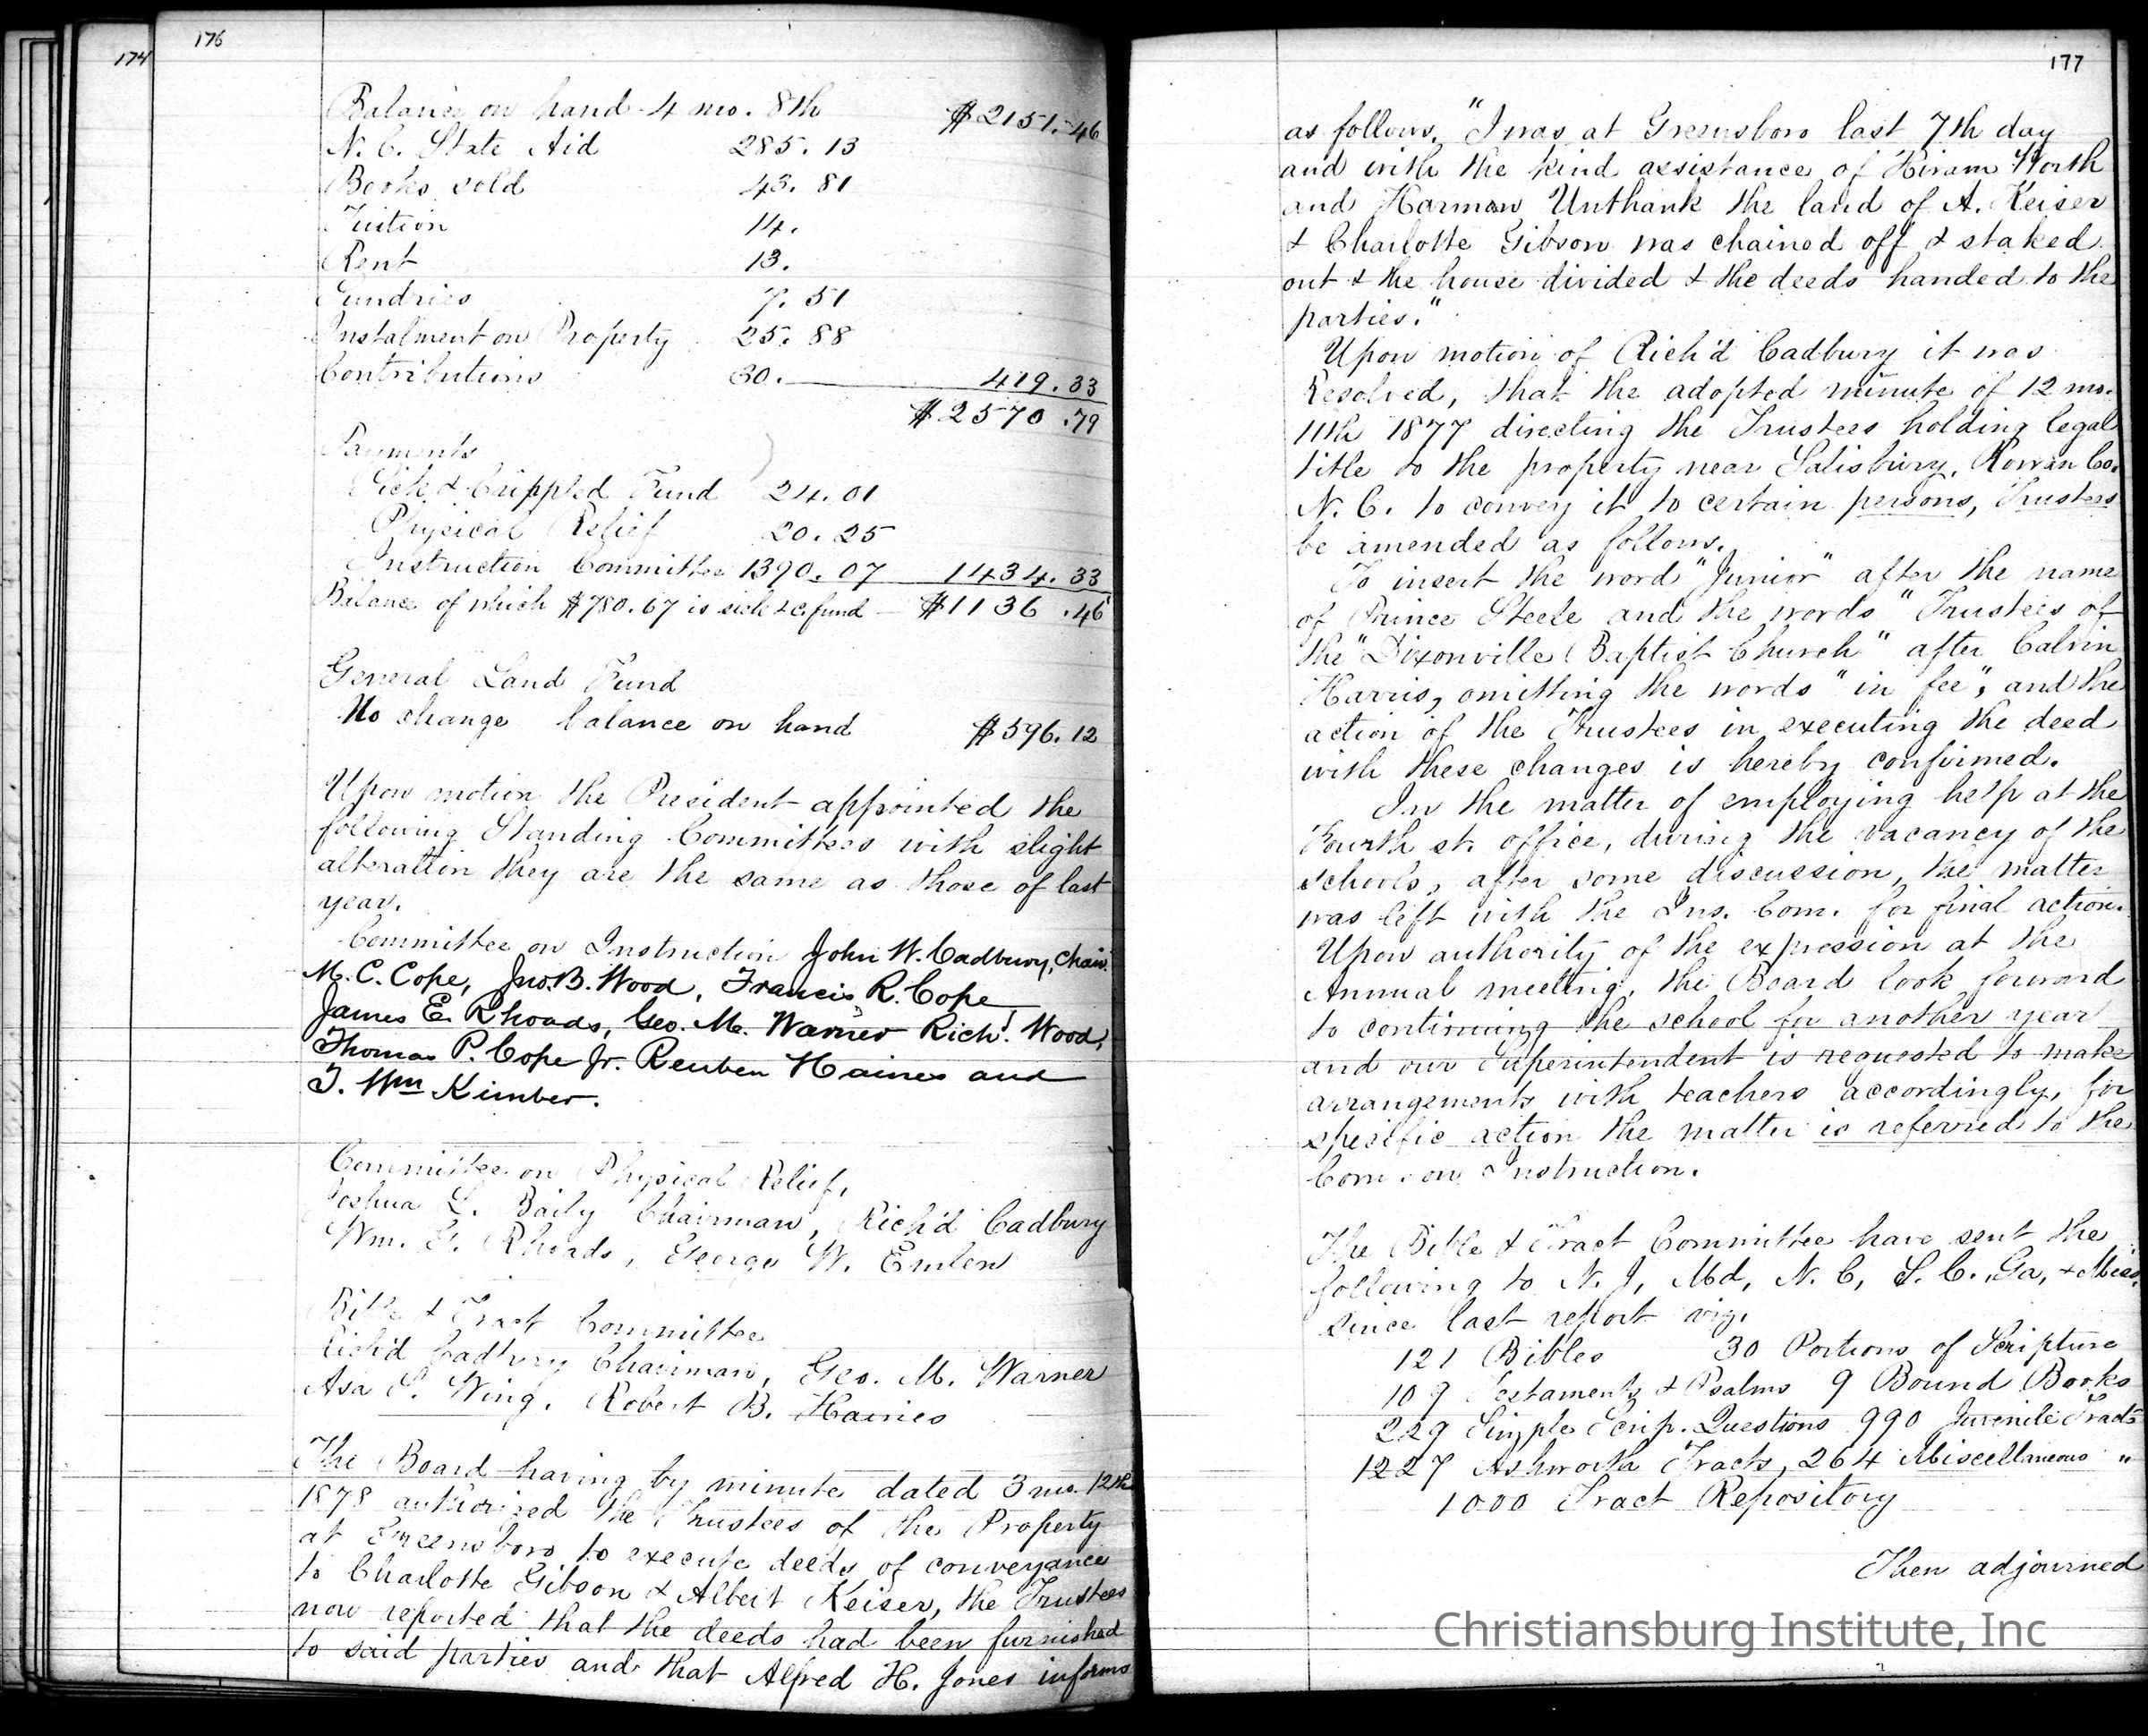 174
176
Balance on hand 4 mo. 8th $2151.46
N. C. State Aid 285.13
Books sold 43.81
Tuition 14.
Rent 13.
Sundries 7.51
Instalment on Property 25.88
Contributions 30. 419.33
$2570.79
Payments
Sick & Crippled Fund 24.01
Physical Relief 20.25
Instruction Committee 1390.07 1434.33
Balance of which $780.67 is sick &c. fund $1136.46
General Land Fund
No change balance on hand $596.12
Upon motion the President appointed the
following Standing Committees with slight
alteration they are the same as those of last
year.
Committee on Instruction John W. Cadbury, Chair.
M. C. Cope, Jno. B. Wood, Francis R. Cope
James E. Rhoads, Geo. M. Warner Richd. Wood,
Thomas P. Cope Jr. Reuben Haines and
T. Wm Kimber.
Committee on Physical Relief,
Joshua L. Baily Chairman, Rich'd Cadbury
Wm. G. Rhoads, George W. Emlen
Bible & Tract Committee
Rich'd Cadbury Chairman, Geo. M. Warner
Asa S. Wing, Robert B. Haines
The Board having by minute dated 3 mo. 12th
1878 authorized the Trustees of the Property
at Greensboro to execute deeds of conveyance
to Charlotte Gibson & Albert Keiser, the Trustees
now reported that the deeds had been furnished
to said parties and that Alfred H. Jones informs
177
as follows. "I was at Greensboro last 7th day
and with the kind assistance of Hiram Worth
and Harman Unthank the land of A. Keiser
& Charlotte Gibson was chained off & staked
out & the house divided & the deeds handed to the
parties."
Upon motion of Rich'd Cadbury it was
Resolved, that the adopted minute of 12 mo.
11th 1877 directing the Trustees holding legal
title to the property near Salisbury, Rowan Co.
N. C. to convey it to certain persons, Trustees
be amended as follows.
To insert the word "Junior" after the name
of Prince Steele and the words "Trustees of
the "Dixonville Baptist Church" after Calvin
Harris, omitting the words "in fee", and the
action of the Trustees in executing the deed
with these changes is hereby confirmed.
In the matter of employing help at the
Fourth st. office, during the vacancy of the
schools, after some discussion, the matter
was left with the Ins. Com. for final action.
Upon authority of the expression at the
Annual meeting, the Board look forward
to continuing the school for another year
and our Superintendent is requested to make
arrangements with teachers accordingly, for
specific action the matter is referred to the
Com. on Instruction.
The Bible & Tract Committee have sent the
following to N. J, Md, N. C, S. C., Ga, & Miss.
since last report viz.
121 Bibles 30 Portions of Scripture
109 Testaments & Psalms 9 Bound Books
229 Simple Scrip. Questions 990 Juvenile Tracts
1227 Ashworth Tracts, 264 Miscellaneous "
1000 Tract Repository
Then adjourned
Christiansburg Institute, Inc